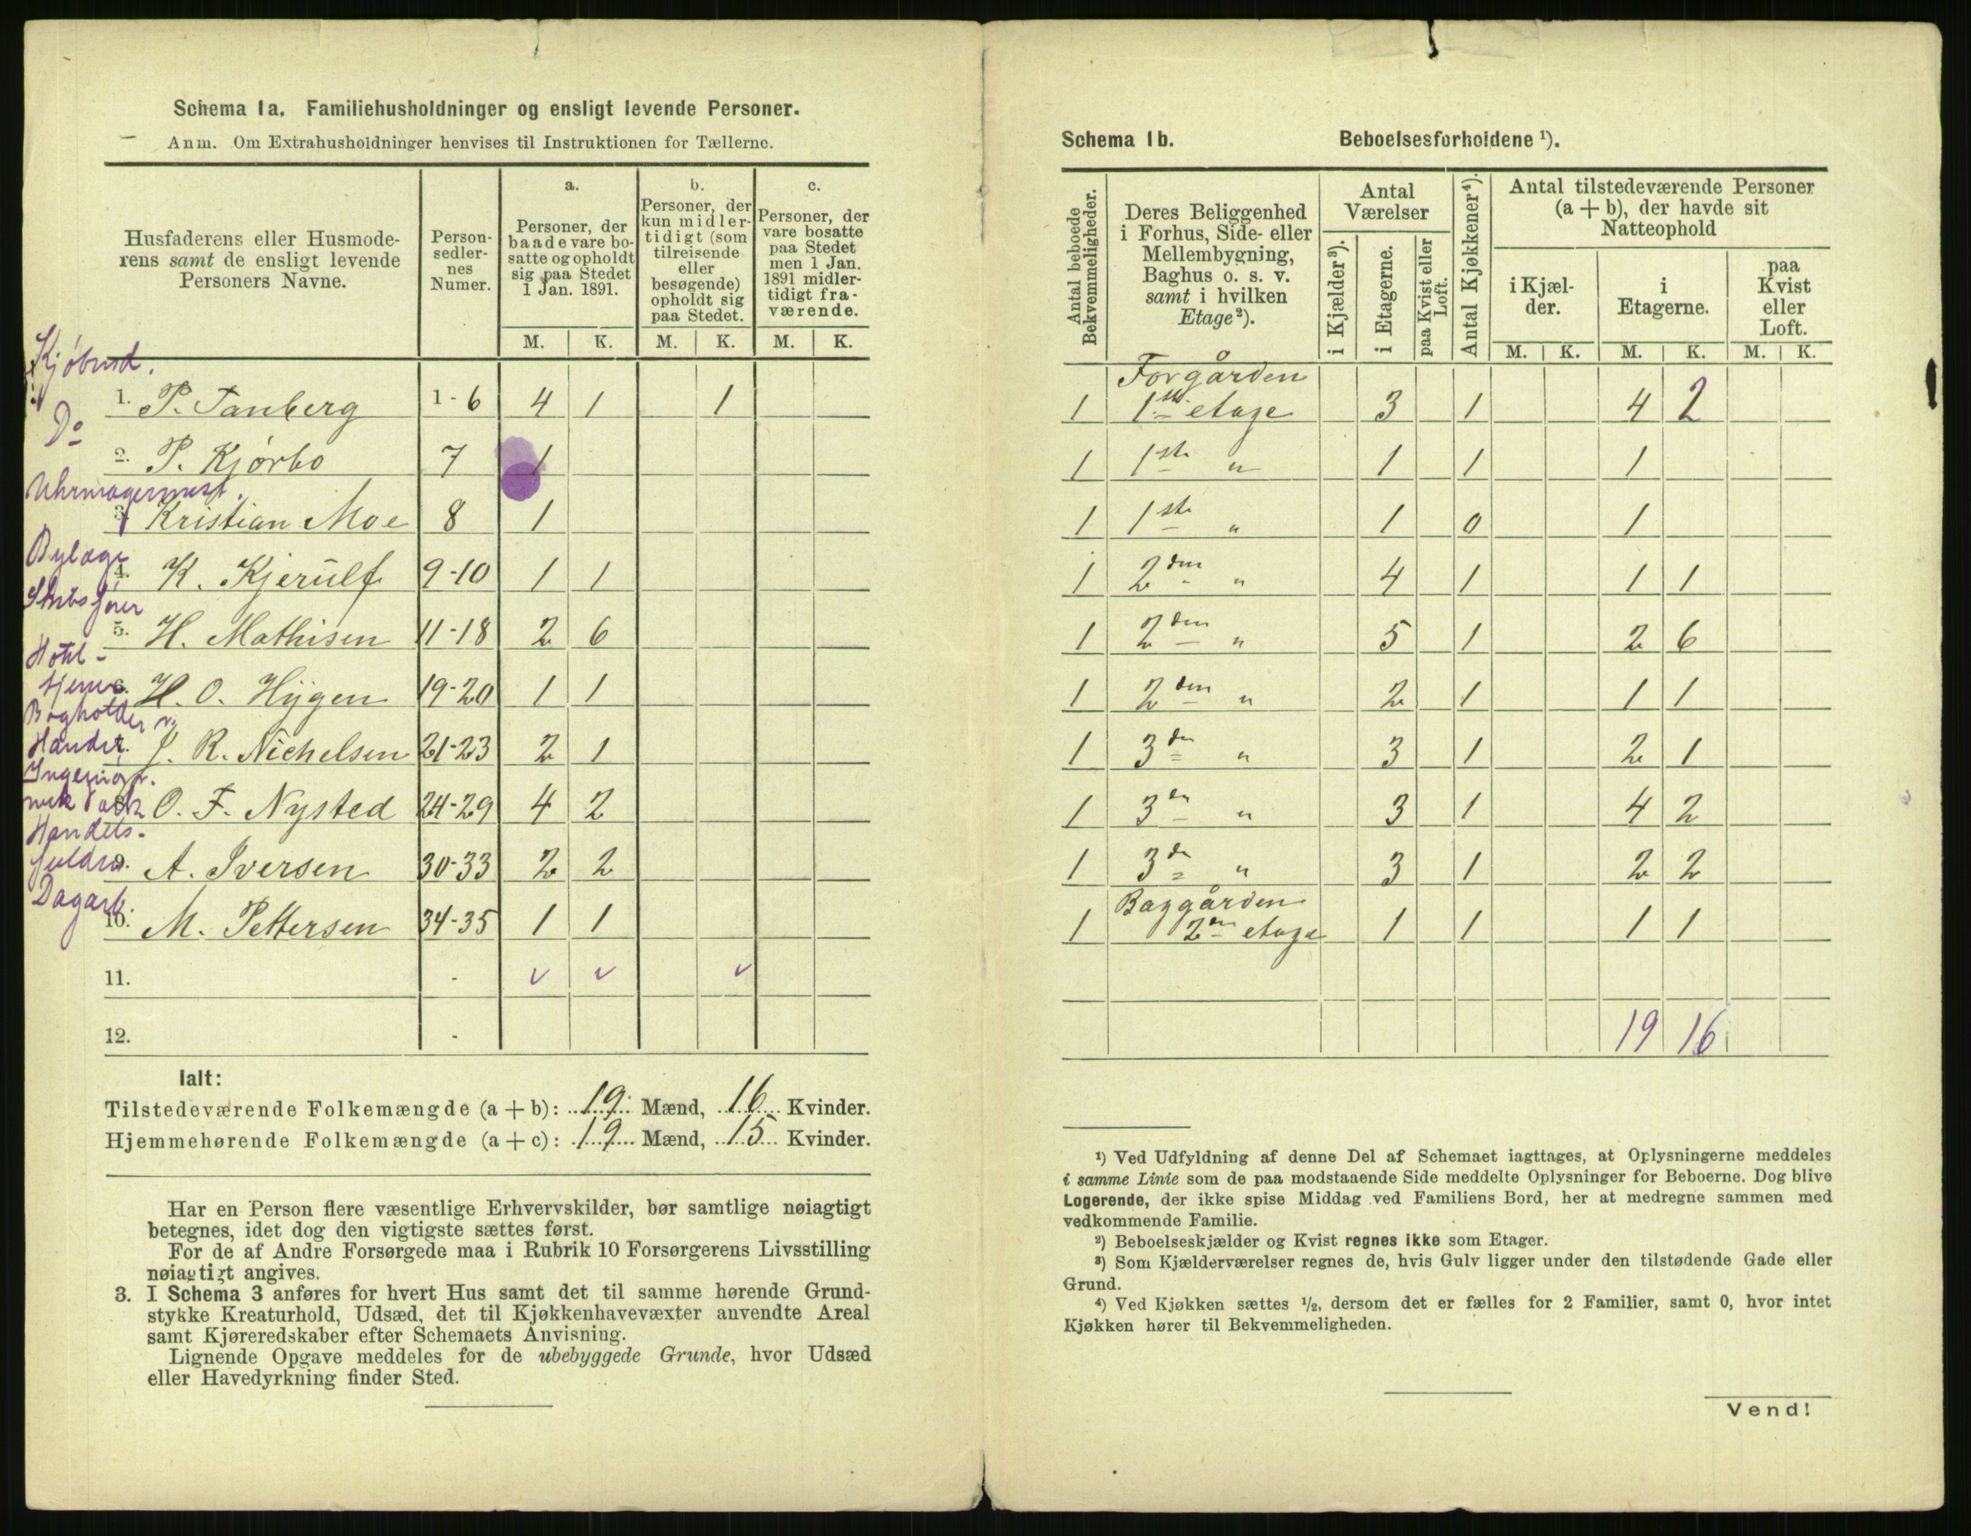 Schema 1a. Familiehusholdninger og ensligt levende Personer.
Anm. Om Extrahusholdninger henvises til Instruktionen for Tællerne.
Husfaderens eller Husmode-
rens samt de ensligt levende
Personers Navne.
Person-
sedler-
nes
Numer.
a.
Personer, der
baade vare bo-
satte og opholdt
sig paa Stedet
1 Jan. 1891.
b.
Personer, der
kun midler-
tidigt (som
tilreisende
eller
besøgende)
opholdt sig
paa Stedet.
c.
Personer, der
vare bosatte
paa Stedet
men 1 Jan.
1891 midler-
tidigt fra-
værende.
M. K. M. K. M. K.
Kjøbmd.
1. P. Tanberg 1-6 4 1 1
Do
2. P. Kjørbo 7 1
Uhrmagermest.
3. Kristian Moe 8 1
Bylæge
4. K. Kjerulf 9-10 1 1
Skibsfører
5. H. Mathisen 11-18 2 6
Hotel-
6. H. O. Hÿgen 19-20 1 1
Bogholder v.
Handel.
J. R. Nichelsen 21-23 2 1
Ingeniør.
8. O. F. Nysted 24-29 4 2
Handels-
9. A. Iversen 30-33 2 2
Dagarb.
10. M. Pettersen 34-35 1 1
11. - v v v
12. -
Ialt:
Tilstedeværende Folkemængde (a + b): 19 Mænd, 16 Kvinder.
Hjemmehørende Folkemængde (a + c): 19 Mænd, 15 Kvinder.
Har en Person flere væsentlige Erhvervskilder, bør samtlige nøiagtigt
betegnes, idet dog den vigtigste sættes først.
For de af Andre Forsørgede maa i Rubrik 10 Forsørgerens Livsstilling
nøiagtigt angives.
3. I Schema 3 anføres for hvert Hus samt det til samme hørende Grund-
stykke Kreaturhold, Udsæd, det til Kjøkkenhavevæxter anvendte Areal
samt Kjøreredskaber efter Schemaets Anvisning.
Lignende Opgave meddeles for de ubebyggede Grunde, hvor Udsæd
eller Havedyrkning finder Sted.
Schema 1b. Beboelsesforholdene ¹).
Antal beboede
Bekvemmeligheder.
Deres Beliggenhed
i Forhus, Side- eller
Mellembygning,
Baghus o. s. v.
samt i hvilken
Etage²).
Antal
Værelser
i Kjælder³).
i Etagerne.
paa Kvist eller
Loft.
Antal Kjøkkener⁴).
Antal tilstedeværende Personer
(a + b), der havde sit
Natteophold
i Kjæl-
der.
i
Etagerne.
paa
Kvist
eller
Loft.
M. K. M. K. M. K.
Forgården
1 1ste etage 3 1 4 2
1 1ste " 1 1 1
1 1ste " 1 0 1
1 2den " 4 1 1 1
1 2den " 5 1 2 6
1 2den " 2 1 1 1
1 3de " 3 1 2 1
1 3de " 3 1 4 2
1 3de " 3 1 2 2
Baggården
1 2en etage 1 1 1 1
19 16
¹) Ved Udfyldning af denne Del af Schemaet iagttages, at Oplysningerne meddeles
i samme Linie som de paa modstaaende Side meddelte Oplysninger for Beboerne. Dog blive
Logerende, der ikke spise Middag ved Familiens Bord, her at medregne sammen med
vedkommende Familie.
²) Beboelseskjælder og Kvist regnes ikke som Etager.
³) Som Kjælderværelser regnes de, hvis Gulv ligger under den tilstødende Gade eller
Grund.
⁴) Ved Kjøkken sættes ½, dersom det er fælles for 2 Familier, samt 0, hvor intet
Kjøkken hører til Bekvemmeligheden.
Vend!